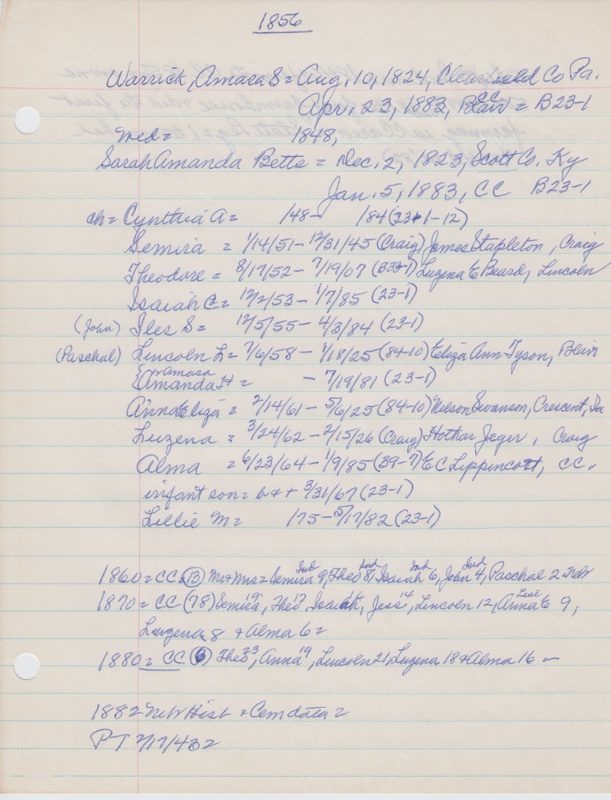 1856
Warrick, Amasa S = Aug, 10, 1824, Clearfield Co Pa.
CC
Apr, 23, 1883, Blair = B23-1
med = 1848,
Sarah Amanda Betts = Dec. 2, 1823, Scott Co. Ky
Jan. 5, 1883, CC B23-1
ch = Cynthia A = /48- /84 (23-1-12)
Semira = 1/14/51 - 12/31/45 (Craig) James Stapleton, Craig
Theodore = 8/17/52 - 7/19/07 (B33-1) Luzena E Beard, Lincoln
Isaiah C = 12/2/53 - 1/7/85 (23-1)
(John) Iles S = 12/5/55 - 4/3/84 (23-1)
(Paschal) Lincoln L = 7/6/58 - 1/18/25 (84-10) Eliza Ann Tyson, Blair
or amasa
Amanda H = - 7/19/81 (23-1)
Anna Eliza = 2/14/61 - 5/6/25 (84-10) Nelson Swanson, Crescent, Ia
Luzena = 3/24/62 - 2/15/26 (Craig) Hothar Jeger, Craig
Alma = 6/23/64 - 1/9/85 (39-7) E C Lippincott, CC.
infant son = b & + 3/31/67 (23-1)
Lillie M = /75 - 5/17/82 (23-1)
1860 = CC (13) Mr & Mrs = Semira 9, Theo 8, Isaiah 6, John 4, Paschal 2 = Nebr
1870 = CC (78) Semira 19, Theo 17, Isaiah, Jess 14, Lincoln 12, Anna E 9,
Luzena 8 & Alma 6 =
1880 = CC (6) Theo 23, Anna 19, Lincoln 21, Luzena 18 & Alma 16 -
1882 Nebr Hist & Cem data =
PT 2/17/4B2